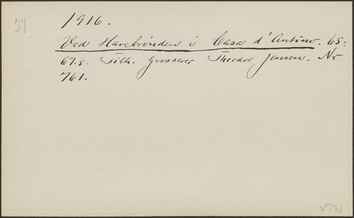 1916.
Ved Havebrønden i Casa d'Antino. 65×
67,5. Tilh. Grosserer Theodor Jensen. Nr
761.